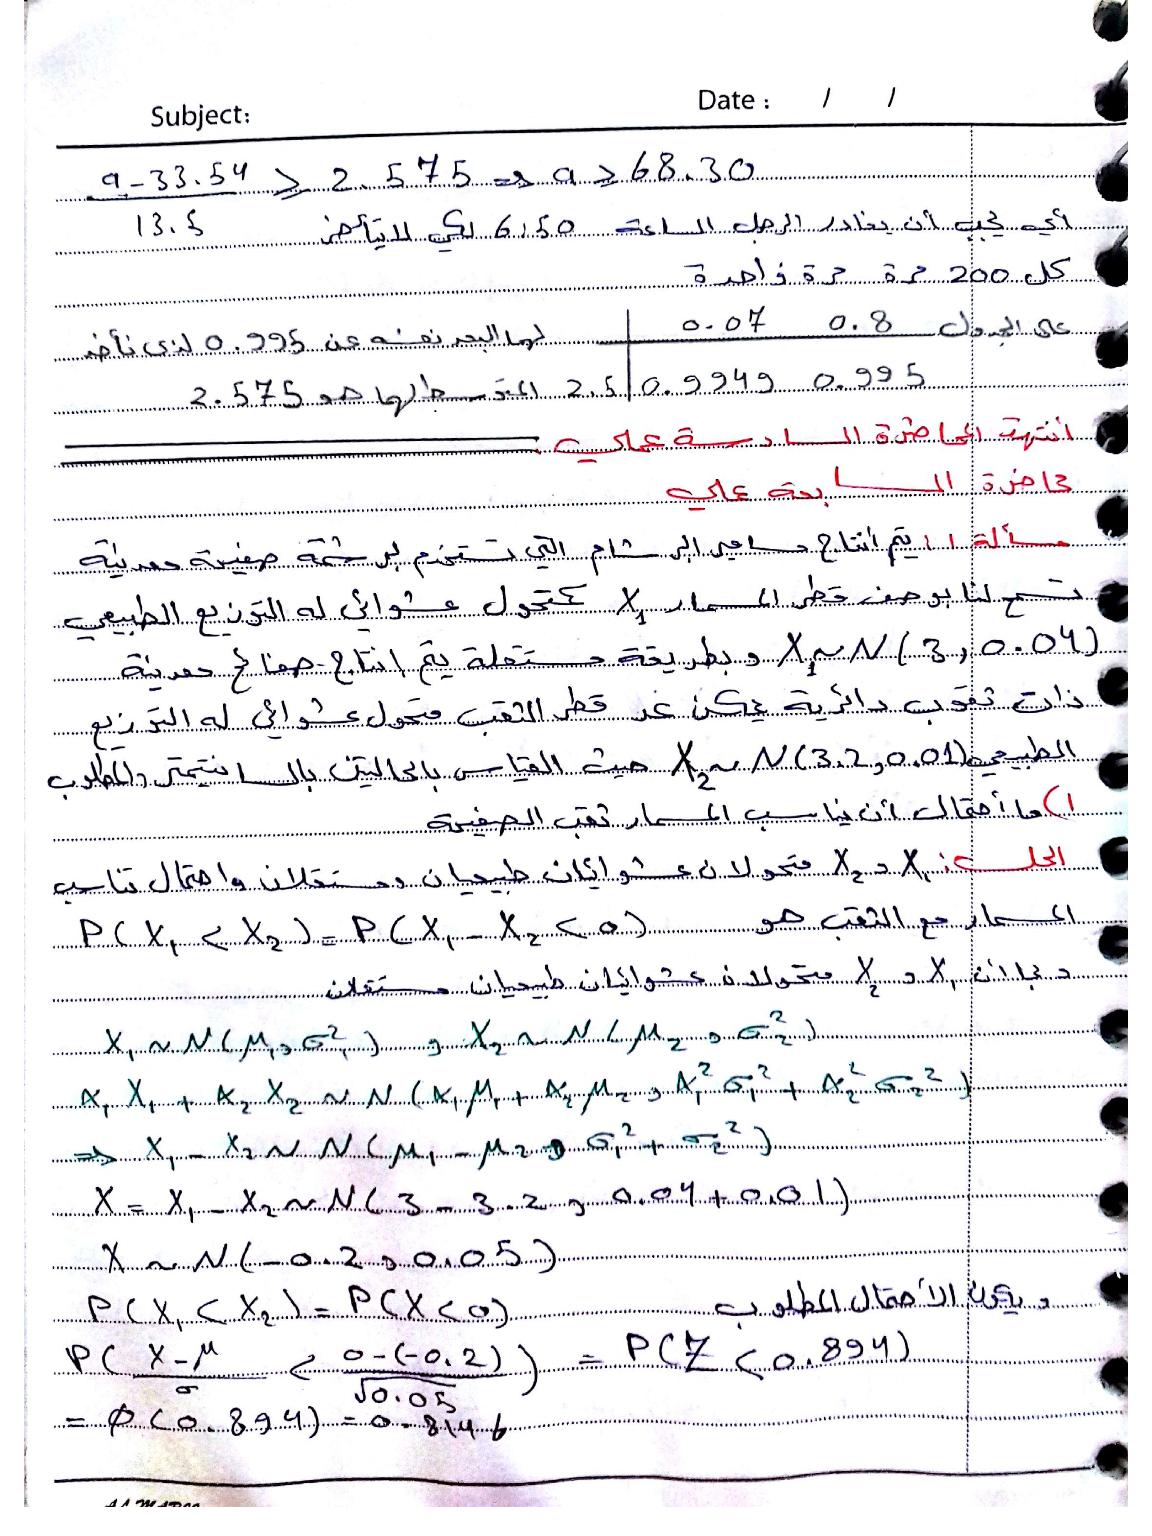 Subject:
Date : / /
a - 33.54 / 13.5 ≥ 2.575 ⇒ a ≥ 68.30
أي يجب أن يغادر الرجل الساعة 6:50 لكي لا يتأخر
كل 200 مرة مرة واحدة
على الجدول 0.8 0.07 لهما البعد نفسه عن 0.995 لذى نأخذ
0.995 0.9949 | 2.5 المتوسط لها هو 2.575
انتهت المحاضرة السادسة عملي
محاضرة السابعة عملي
مسألة 1: يتم انتاج مسامير البرشام التي تستخدم لبرشمة صفيحة معدنية
تسمح لنا بوصف قطر المسمار X₁ كمتحول عشوائي له التوزيع الطبيعي
X₁ ~ N(3, 0.04) وبطريقة مستقلة يتم انتاج صفائح معدنية
ذات ثقوب دائرية يمكن عد قطر الثقب متحول عشوائي له التوزيع
الطبيعي X₂ ~ N(3.2, 0.01) حيث القياس بالحالتين بالسانتيمتر والمطلوب
1) ما أحتمال أن يناسب المسمار ثقب الصفيحة
الحل: X₁ و X₂ متحولان عشوائيان طبيعيان ومستقلان واحتمال تناسب
المسمار مع الثقب هو P(X₁ < X₂) = P(X₁ - X₂ < 0)
وبما أن X₁ و X₂ متحولان عشوائيان طبيعيان مستقلان
X₁ ~ N(μ₁, σ₁²) و X₂ ~ N(μ₂, σ₂²)
α₁X₁ + α₂X₂ ~ N(α₁μ₁ + α₂μ₂, α₁²σ₁² + α₂²σ₂²)
⇒ X₁ - X₂ ~ N(μ₁ - μ₂, σ₁² + σ₂²)
X = X₁ - X₂ ~ N(3 - 3.2, 0.04 + 0.01)
X ~ N(-0.2, 0.05)
ويكون الأحتمال المطلوب P(X₁ < X₂) = P(X < 0)
P( X-μ / σ < 0-(-0.2) / √0.05 ) = P(Z < 0.894)
= φ(0.894) = 0.8146